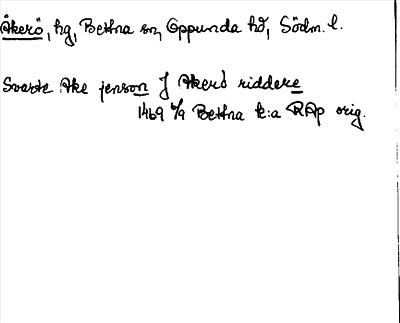 Åkerö, hg, Bettna sn, Oppunda hd, Södm. l.
Swarte Ake jenson J Akerö riddere
1469 6/9 Bettna k:a RAp orig.